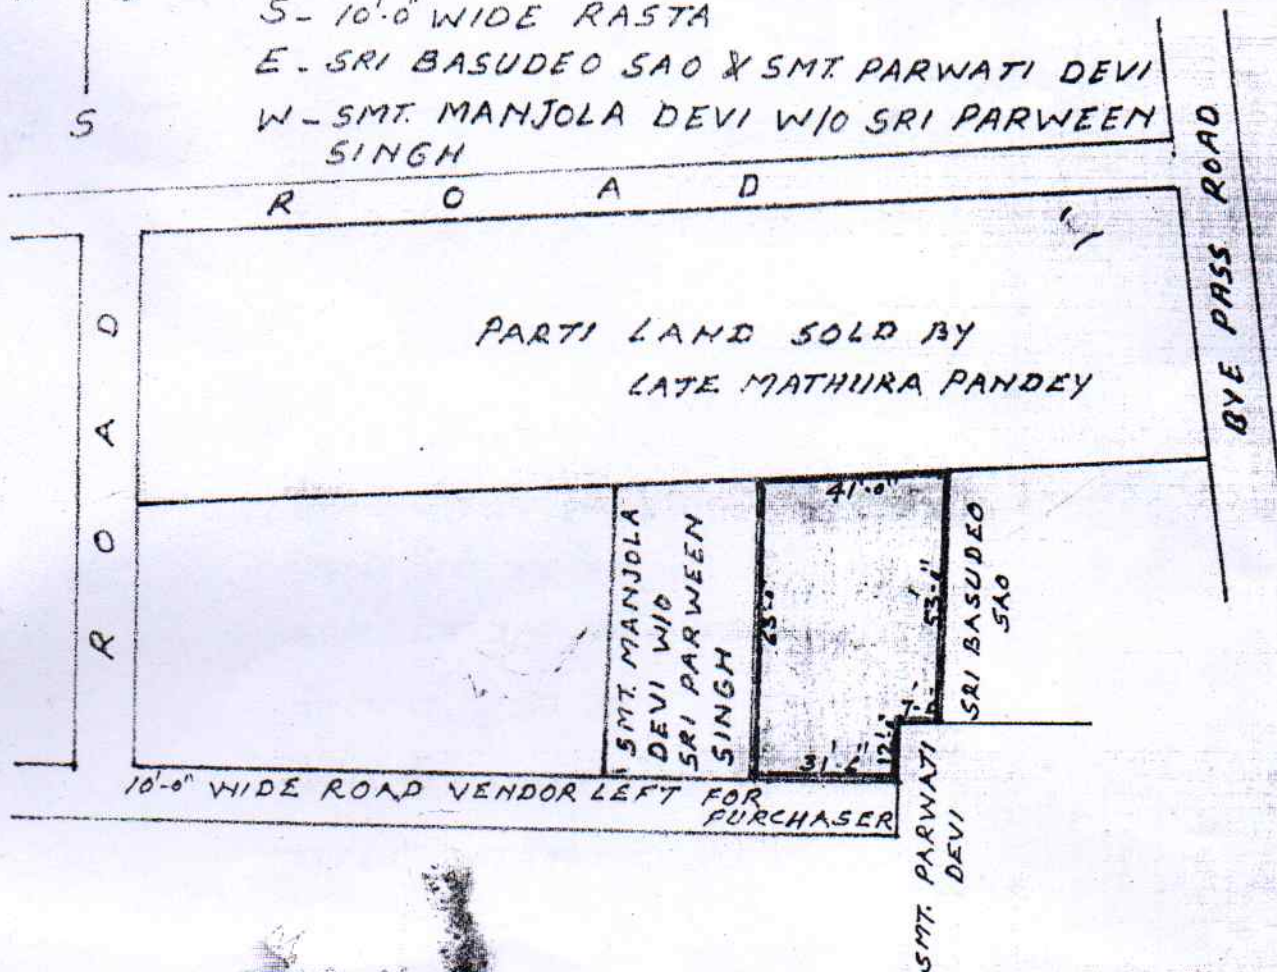 S
S - 10'-0" WIDE RASTA
E - SRI BASUDEO SAO & SMT. PARWATI DEVI
W - SMT. MANJOLA DEVI W/O SRI PARWEEN
SINGH
ROAD
BYE PASS ROAD
ROAD
PARTI LAND SOLD BY
LATE MATHURA PANDEY
41'-0"
SMT. MANJOLA
DEVI W/O
SRI PARWEEN
SINGH
SRI BASUDEO
SAO
10'-0" WIDE ROAD VENDOR LEFT FOR
PURCHASER
SMT. PARWATI
DEVI